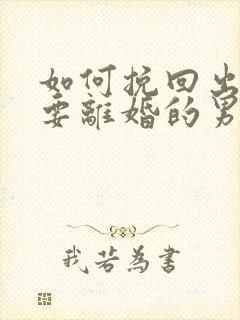 如何挽回出
要離婚的男
我若為書